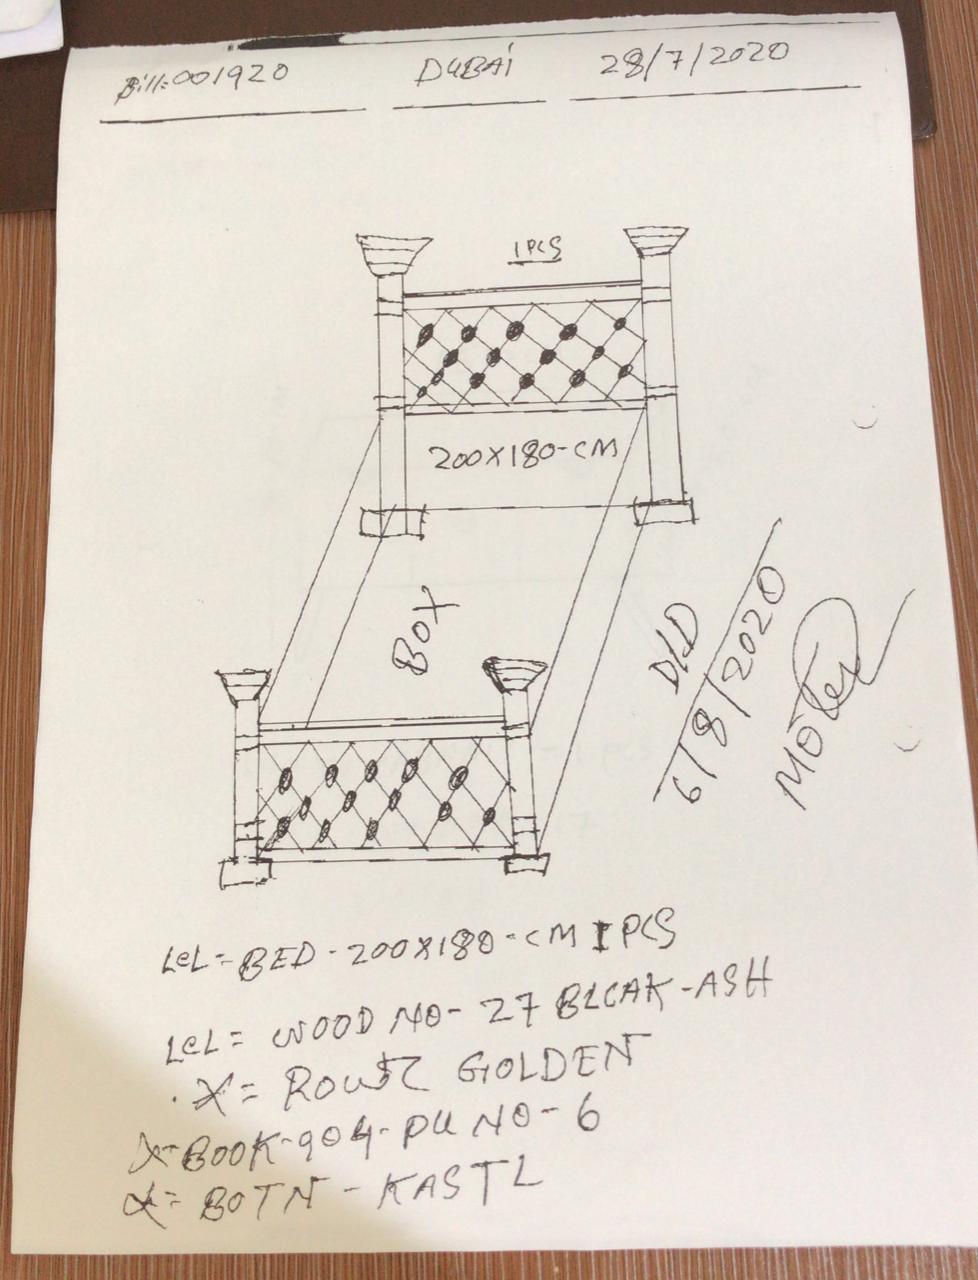 Bill:001920 DUBAi 28/7/2020
1PCS
200X180-CM
BOX
D/D
6/8/2020
LeL= BED-200X180-CM 1 PCS
LeL= WOOD NO- 27 BLCAK-ASH
X= GOLDEN
X=BOOK-904-PU NO-6
X= BOTN-KASTL